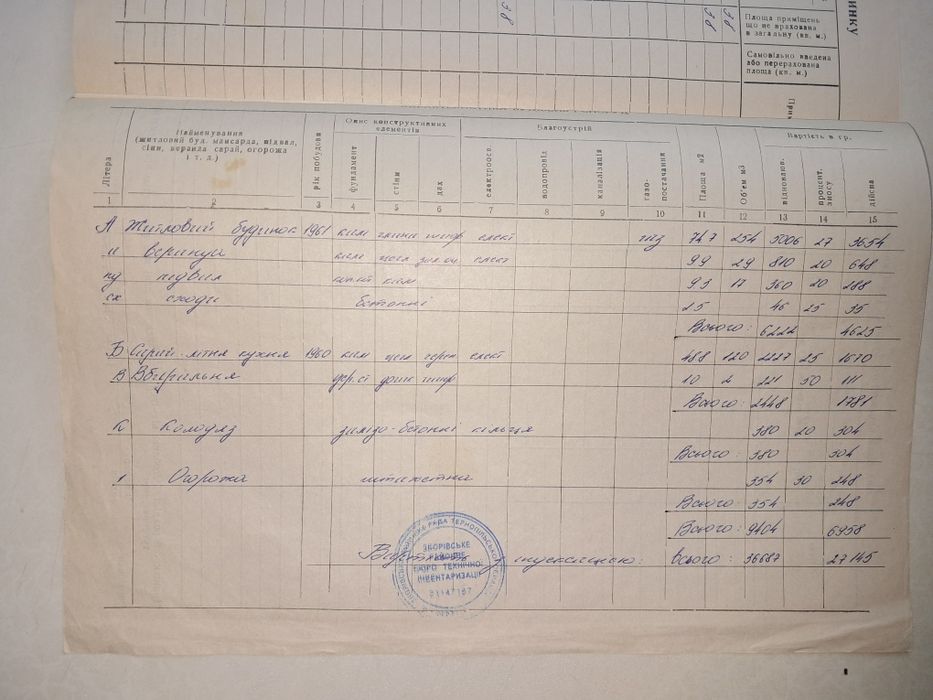 38
38
38
Площа приміщень
що не врахована
в загальну (кв. м.)
Самовільно введена
або перерахована
площа (кв. м.)
Літера
Найменування
(житловий буд. мансарда, підвал,
сіни, веранда сарай, огорожа
і т. д.)
рік побудови
Опис конструктивних
елементів
фундамент
стіни
дах
Благоустрій
електроосв.
водопровід
каналізація
газо-
постачання
Площа м2
Об'єм м3
Вартість в гр.
відновлюв.
процент.
зносу
дійсна
1 2 3 4 5 6 7 8 9 10 11 12 13 14 15
А Житловий будинок 1961 кам глина шиф елект газ 74 7 254 5006 27 3654
и веранда кам цегл елект 9 9 29 810 20 648
пд підвал кам 9 5 17 360 20 288
сх сходи бетонні 2 5 46 25 35
Всього: 6222 4625
Б Сарай-літня кухня 1960 кам цегл череп елект 48 8 120 2227 25 1670
В Вбиральня дер.ст дошк шиф 1 0 2 221 50 111
Всього: 2448 1781
К Колодяз залізо-бетонні кільця 380 20 304
Всього: 380 304
1 Огорожа штахетна 354 30 248
Всього: 354 248
Всього: 9404 6958
Всього: 36687 27145
ЗБОРІВСЬКЕ
РАЙОННЕ
БЮРО ТЕХНІЧНОЇ
ІНВЕНТАРИЗАЦІЇ